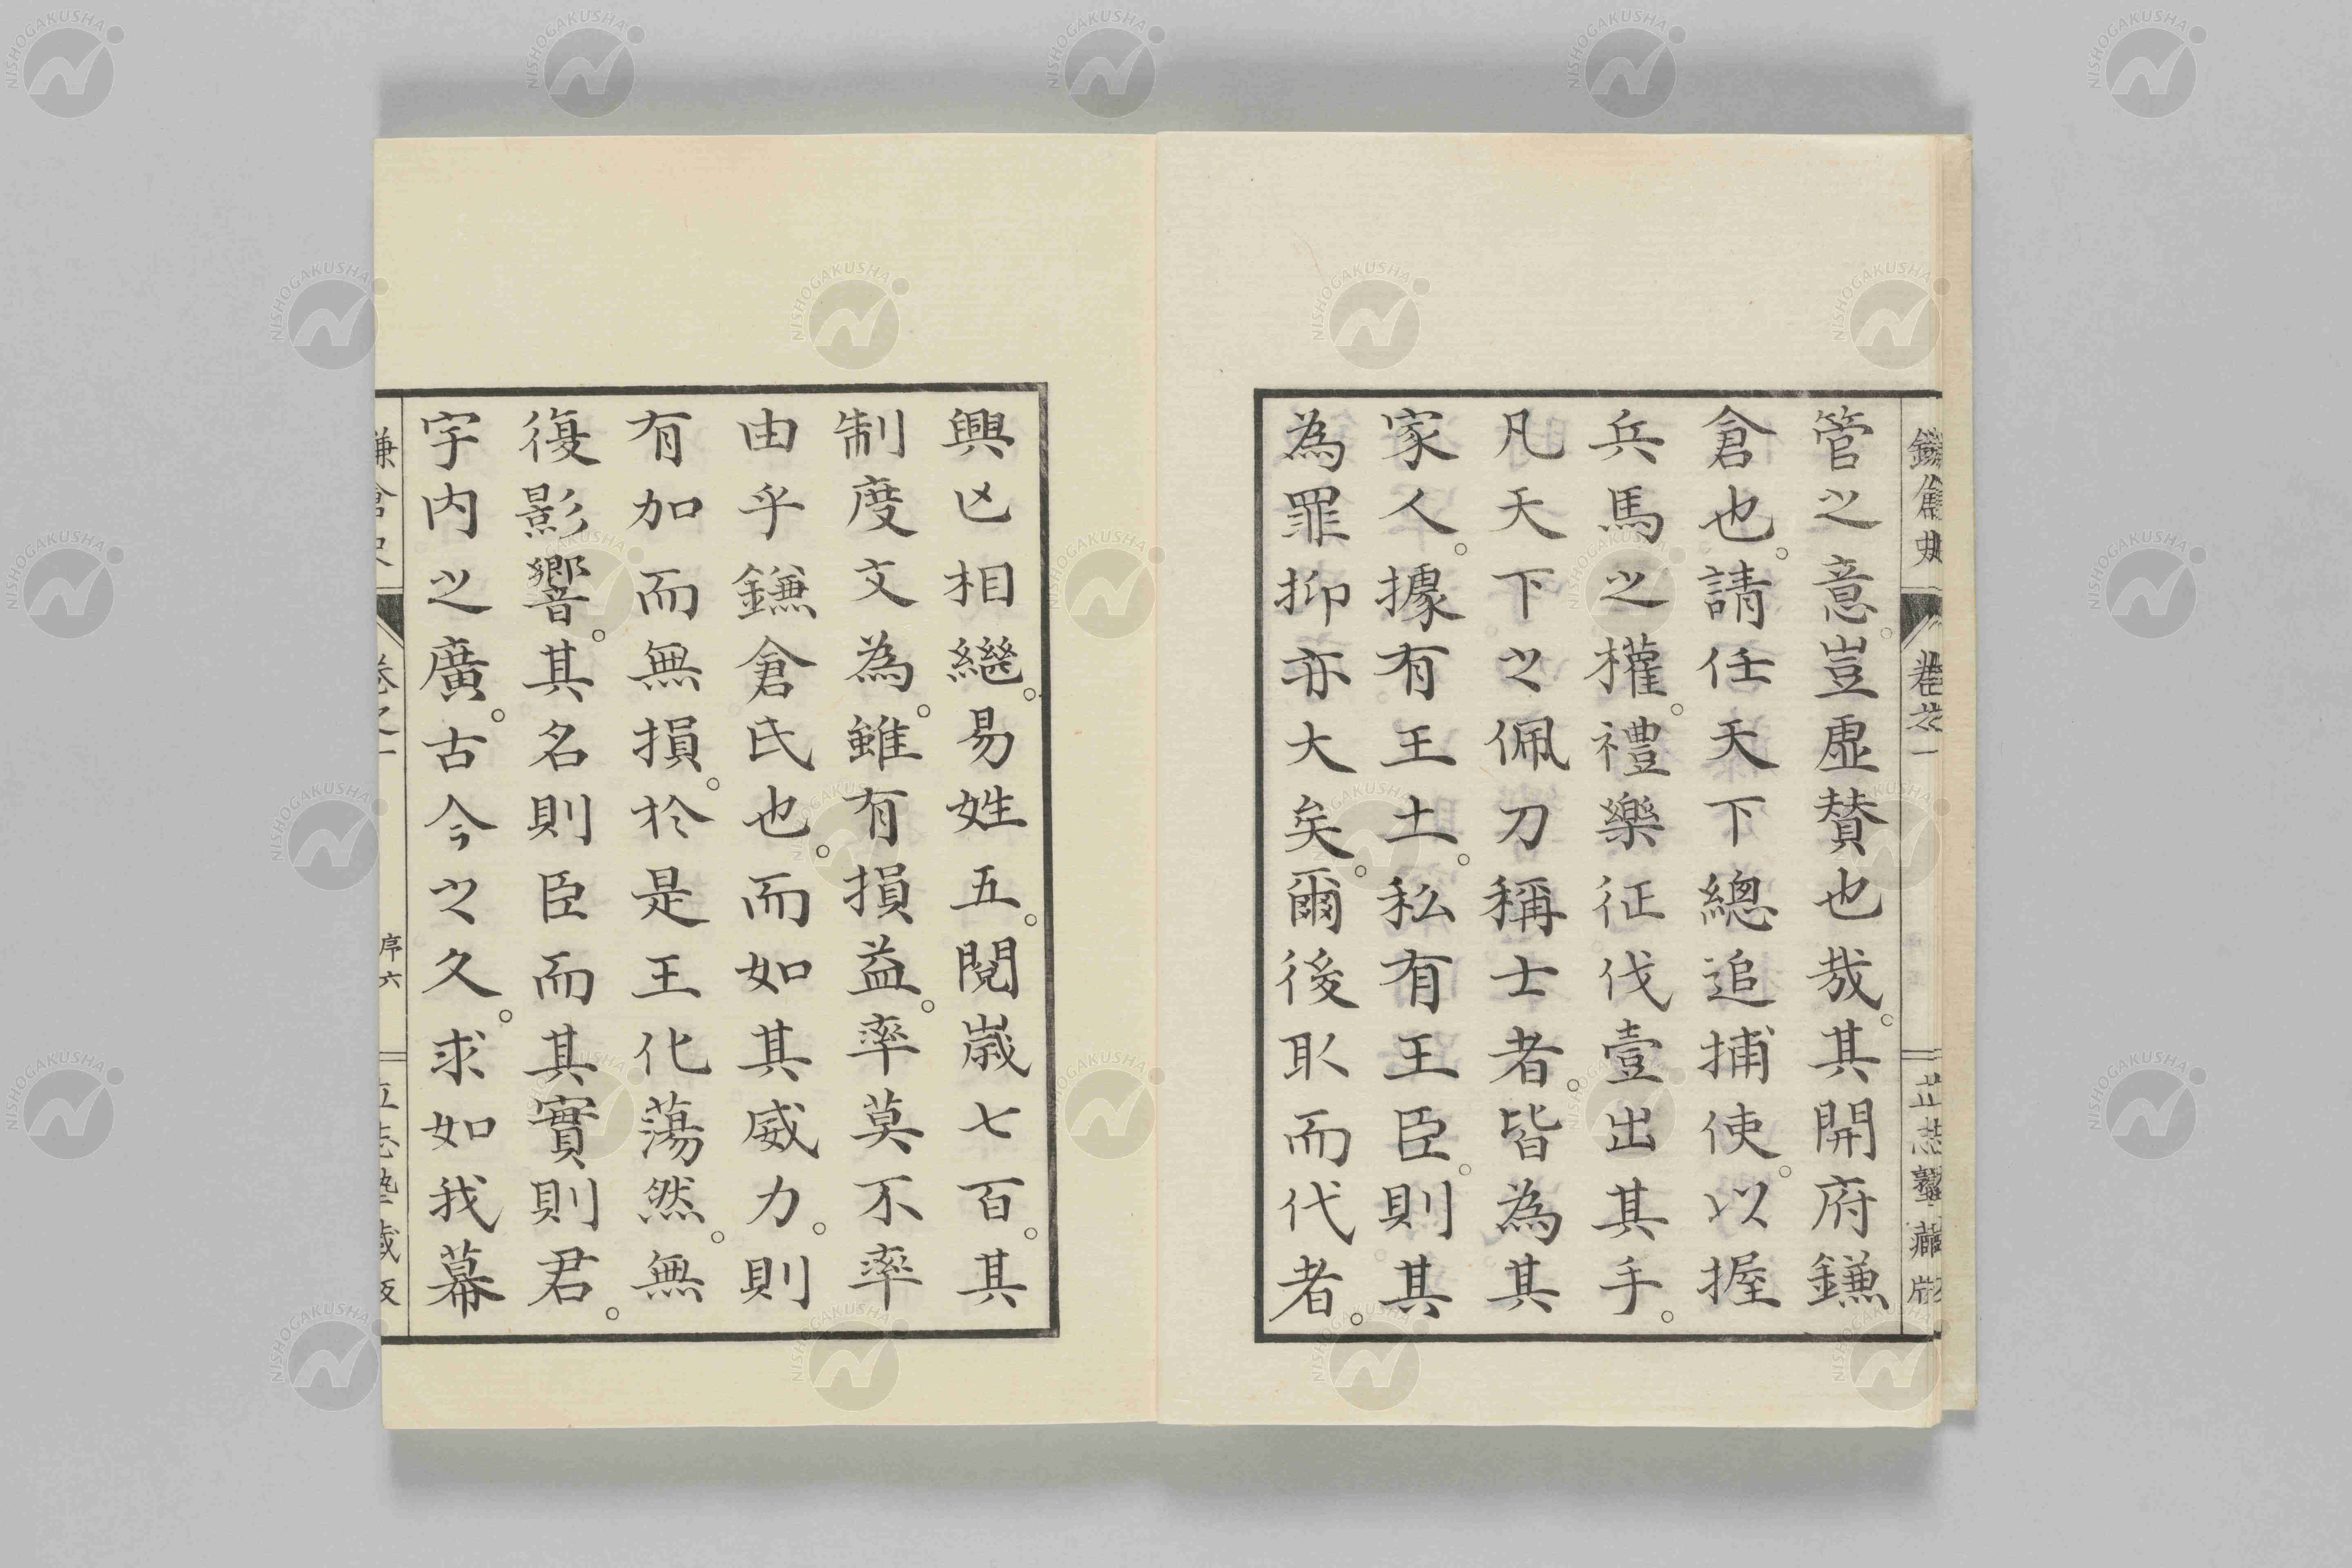 管之意。豈虛賛也哉。其開府鎌
倉也。請任天下總追捕使。以握
兵馬之權。禮樂征伐壹出其手。
凡天下之佩刀稱士者。皆為其
家人。據有王土。私有王臣。則其
為罪抑亦大矣。爾後取而代者。
興亡相繼。易姓五。閱歲七百。其
制度文為。雖有損益。率莫不率
由乎鎌倉氏也。而如其威力。則
有加而無損。於是王化蕩然。無
復影響。其名則臣而其實則君。
宇内之廣。古今之久。求如我幕
鎌倉史
卷之一
序六
NISHOGAKUSHA